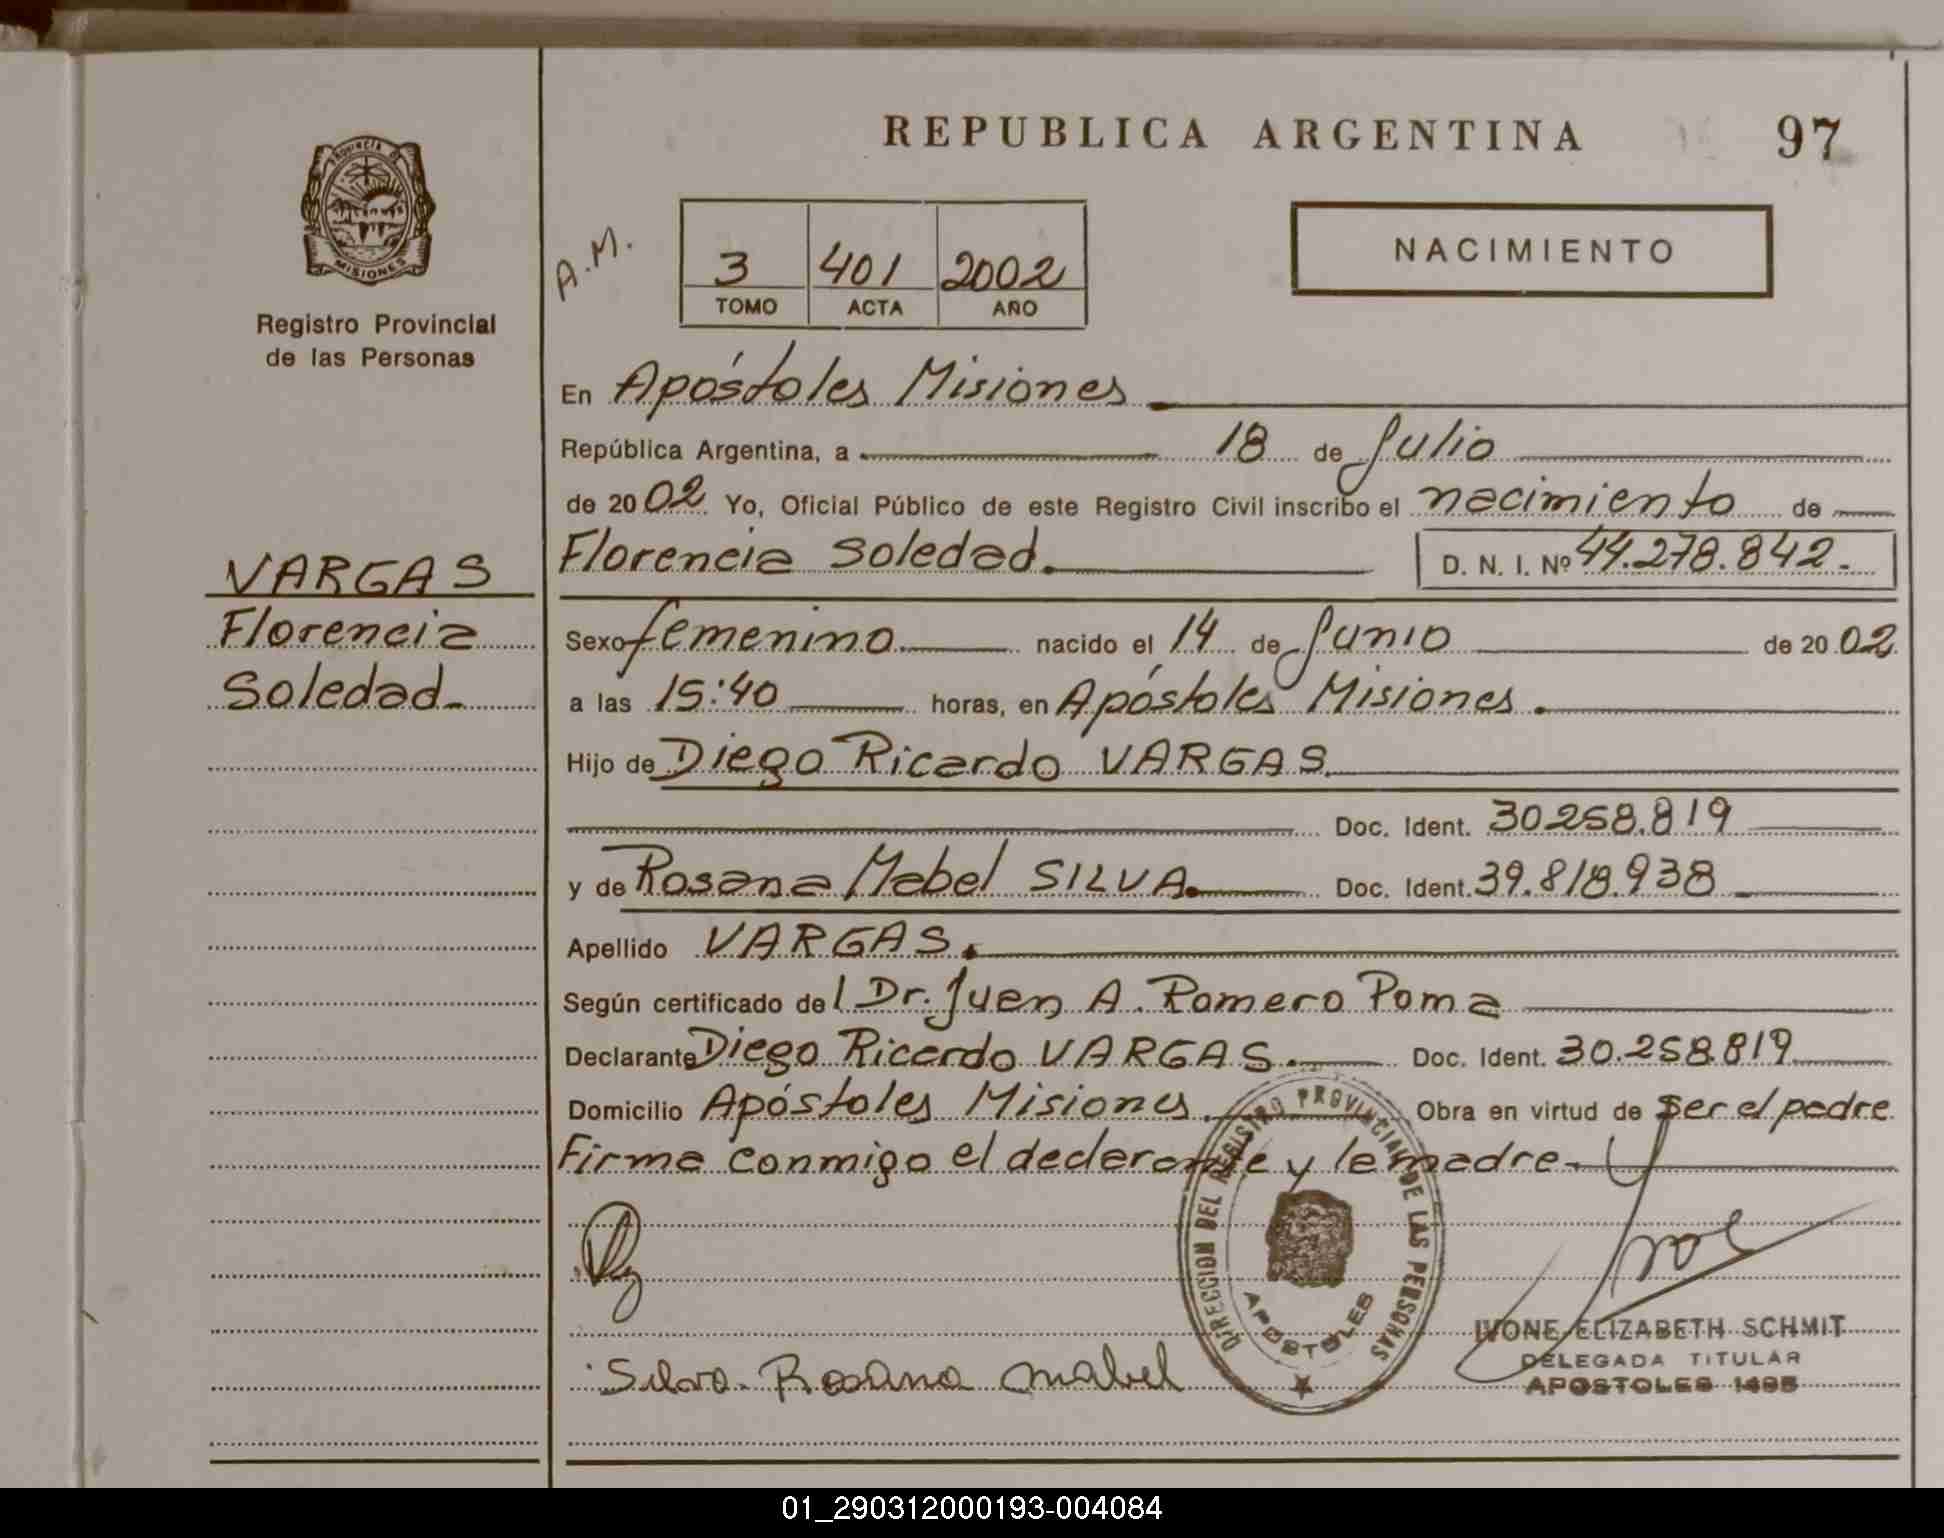 REPUBLICA ARGENTINA 97
PROVINCIA DE
MISIONES
Registro Provincial
de las Personas
A.M.
3 401 2002
TOMO ACTA AÑO
NACIMIENTO
En Apóstoles Misiones
República Argentina, a 18 de Julio
de 2002 Yo, Oficial Público de este Registro Civil inscribo el nacimiento de
Florencia Soledad. D. N. I. Nº 44.278.842.-
VARGAS
Florencia
Soledad.-
Sexo femenino nacido el 14 de Junio de 2002
a las 15:40 horas, en Apóstoles Misiones.
Hijo de Diego Ricardo VARGAS
Doc. Ident. 30258.819
y de Rosana Mabel SILVA. Doc. Ident. 39.818.938
Apellido VARGAS.
Según certificado del Dr. Juan A. Romero Poma
Declarante Diego Ricardo VARGAS. Doc. Ident. 30.258.819
Domicilio Apóstoles Misiones. Obra en virtud de ser el padre
Firma conmigo el declarante y la madre.-
DIRECCION DEL REGISTRO PROVINCIAL DE LAS PERSONAS
APOSTOLES
Silva. Rosana Mabel
IVONE ELIZABETH SCHMIT
DELEGADA TITULAR
APOSTOLES 1495
01_290312000193-004084